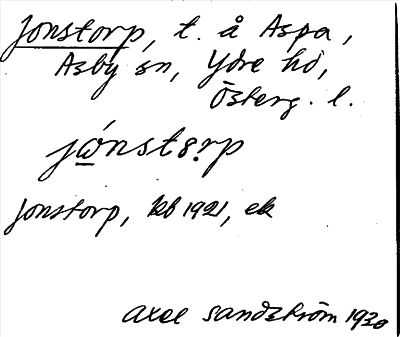 Jonstorp, t. å Aspa,
Asby sn, Ydre hd,
Österg. l.
jώnstȣrp
Jonstorp, kb 1921, ek
Axel Sandström 1930